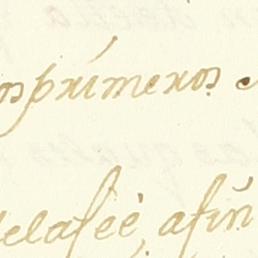 os primeros
delaseè, afin